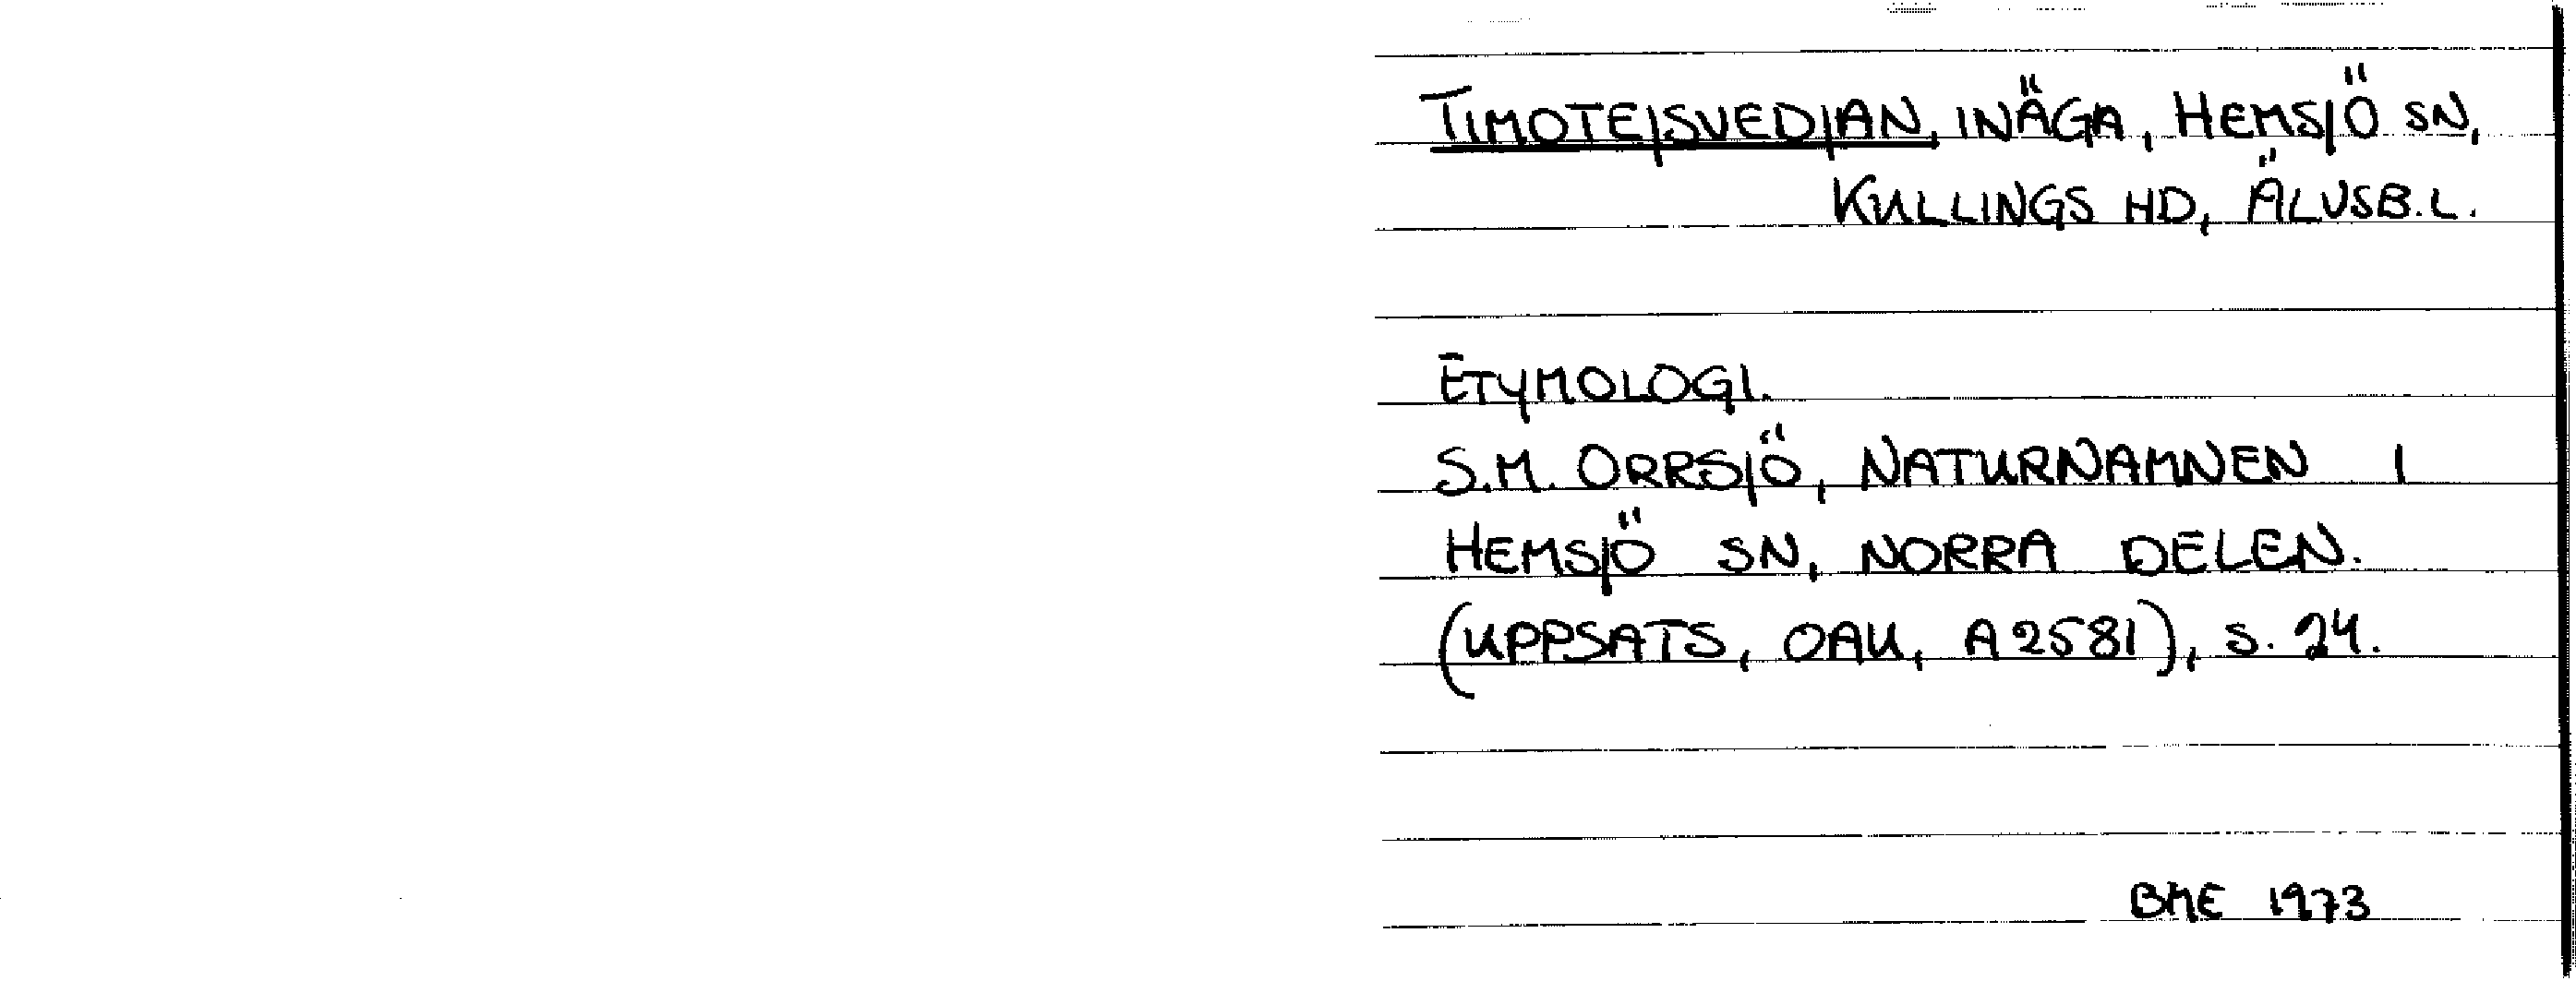 TIMOTEJSVEDJAN, INÄGA, HEMSJÖ SN,
KULLINGS HD, ÄLVSB.L.
ETYMOLOGI.
S.M. ORRSJÖ, NATURNAMNEN I
HEMSJÖ SN, NORRA DELEN.
(UPPSATS, OAU, A2581), S. 24.
BME 1973